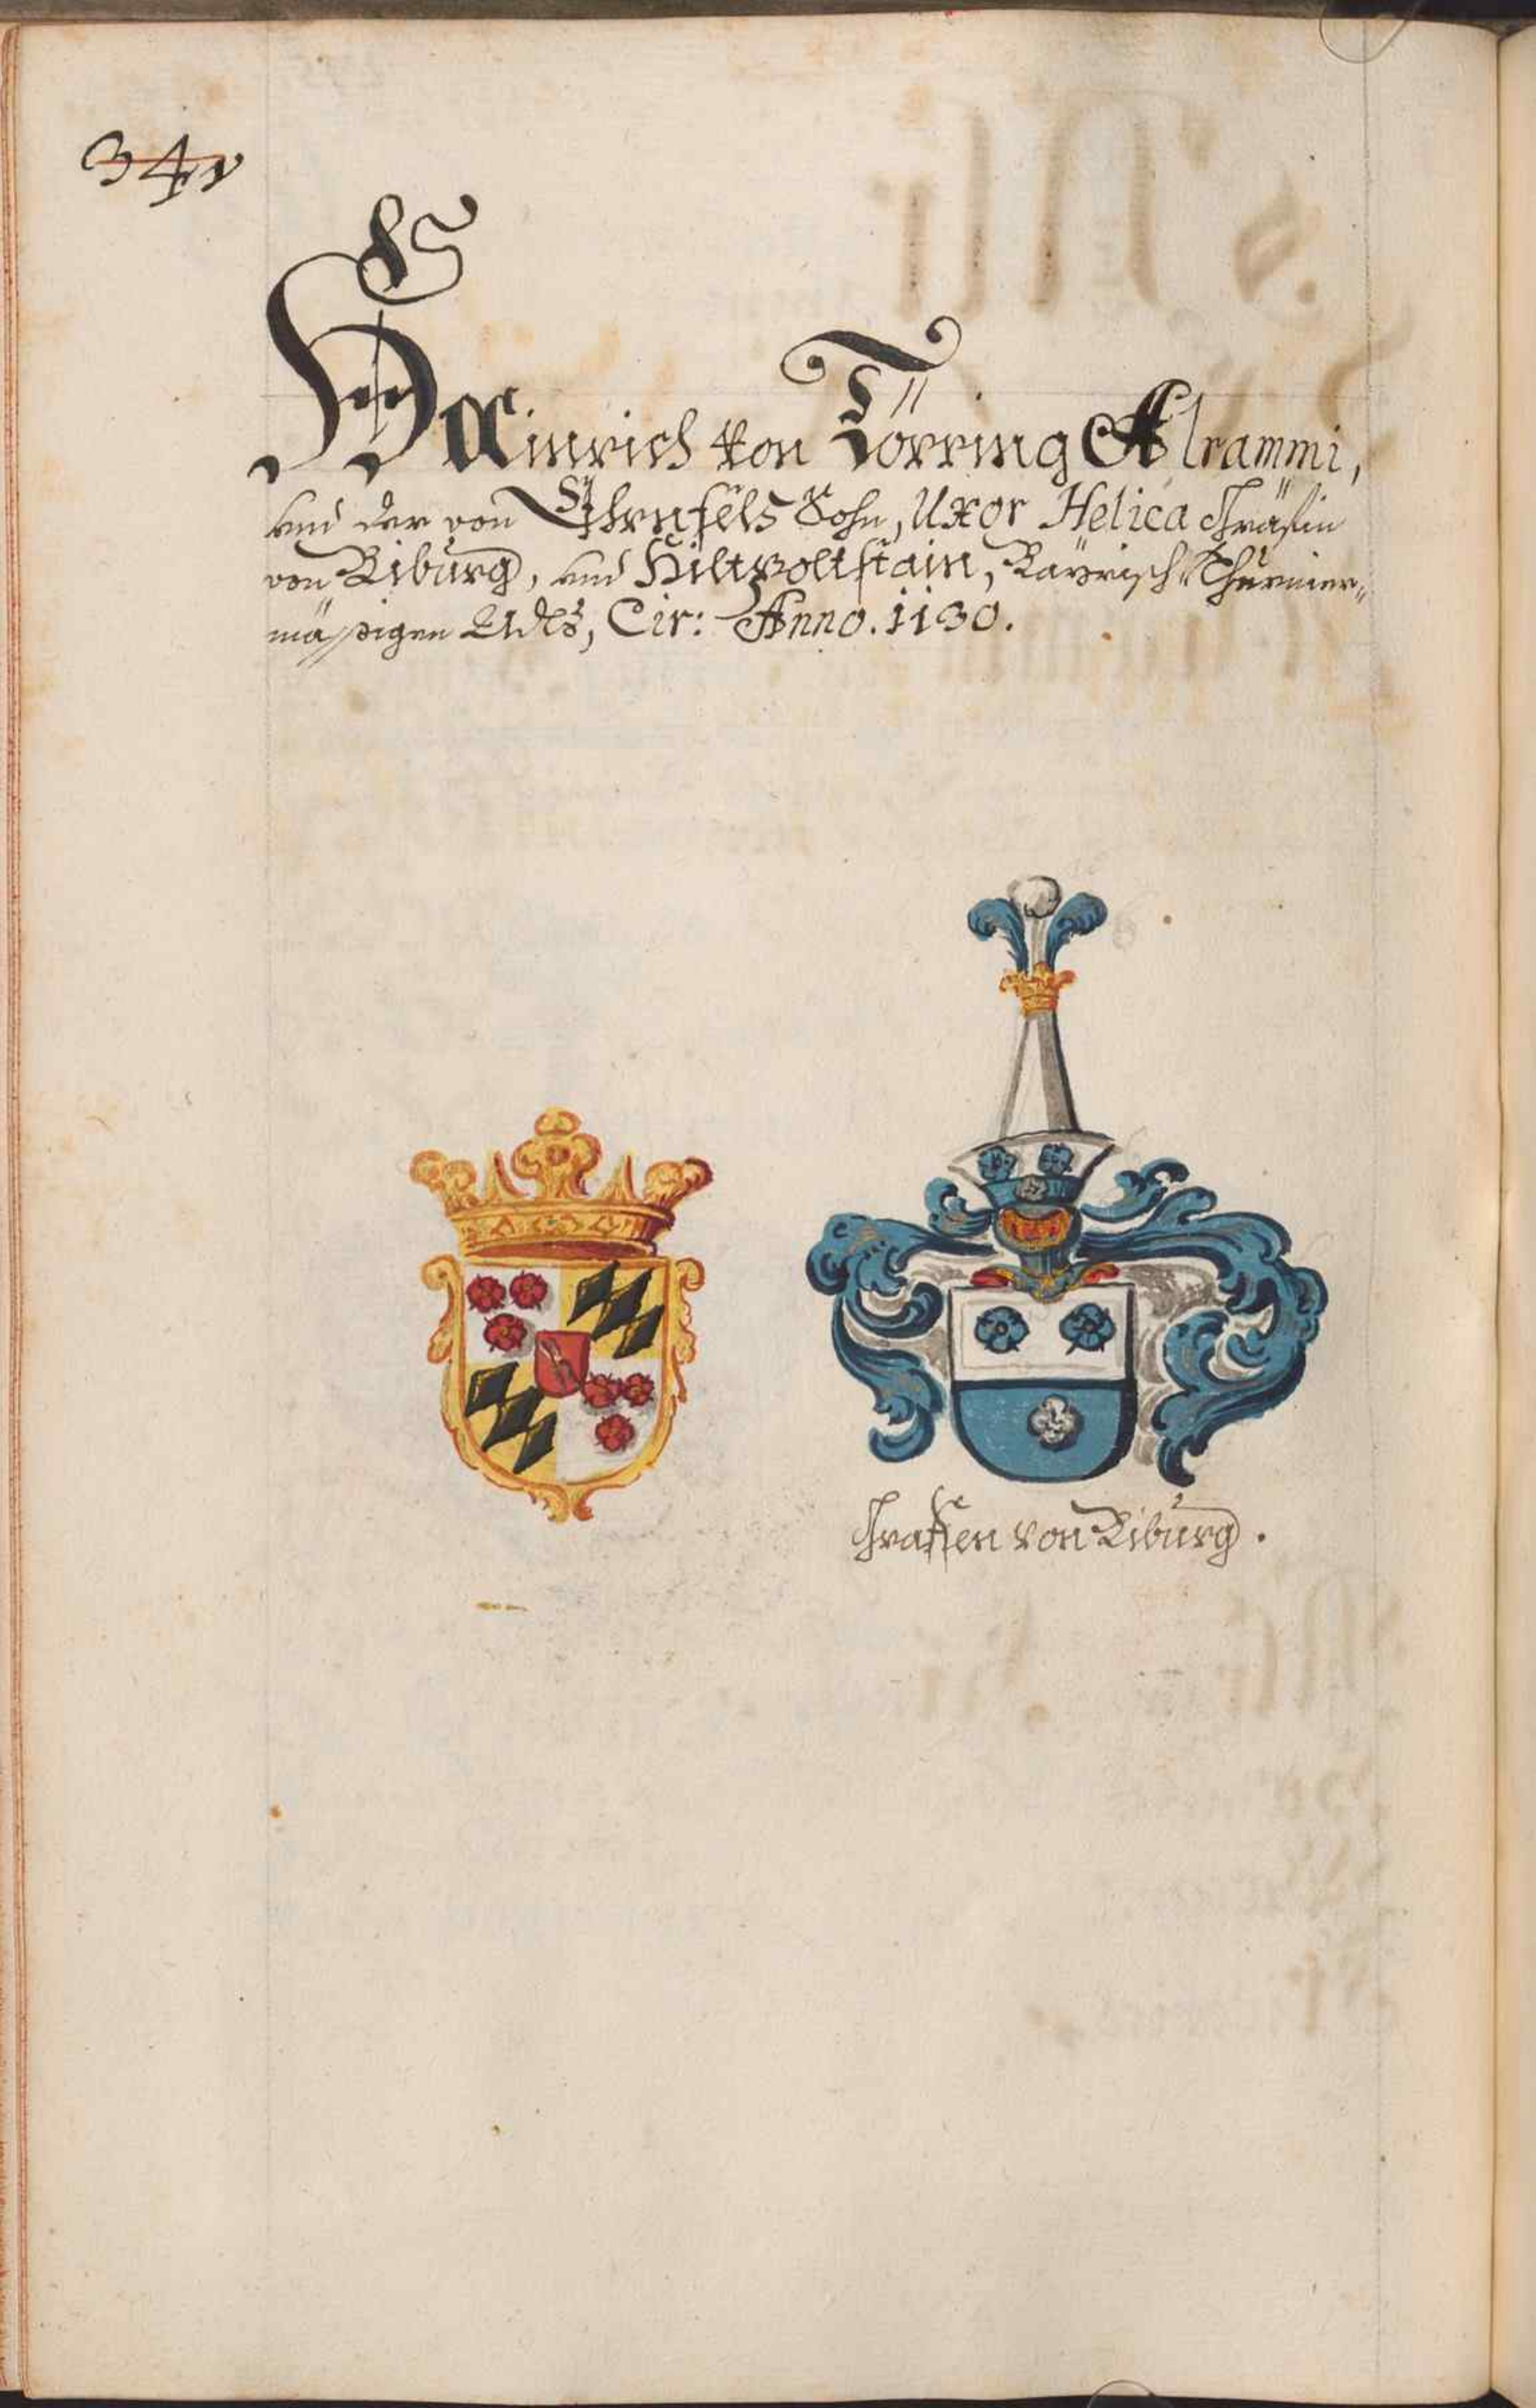 341
G
Hainrich von Törring Alrammi,
und der von Ehrnfels Sohn, Uxor Helica Gräfin
von Riburg, und Hiltpoltstain, Bayrisch Thurnier„
mässigen Adls, Cir: Anno. 1130.
Grafen von Riburg.